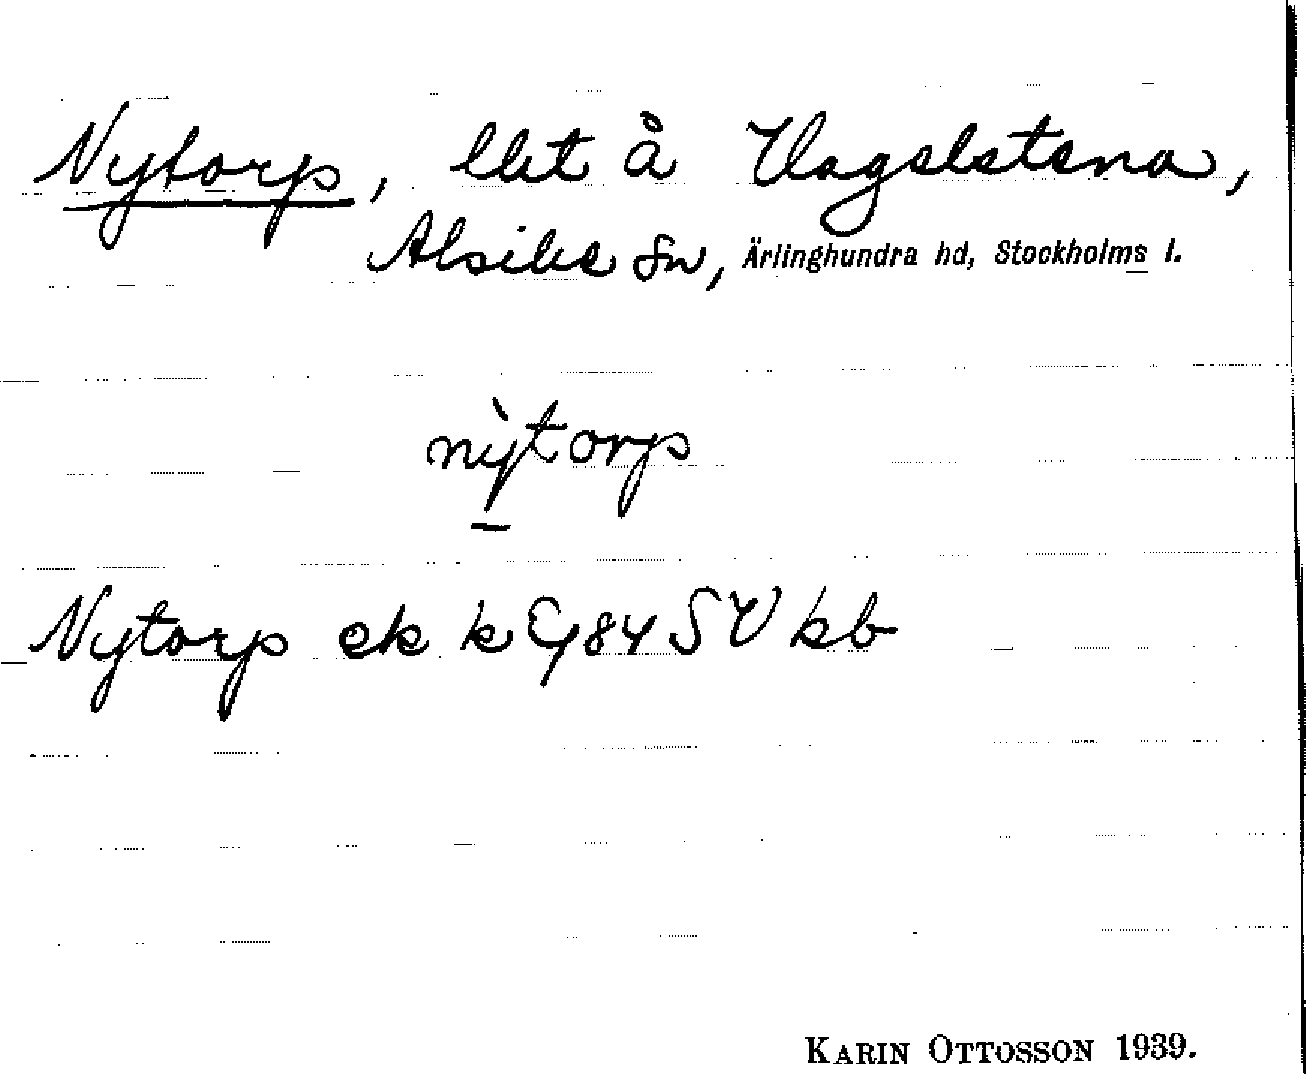 Nytorp, llet å Vagelstena,
Alsike sn, Ärlinghundra hd, Stockholms l.
nỳtorp
Nytorp ek k Eg 84 SV kb
KARIN OTTOSSON 1939.